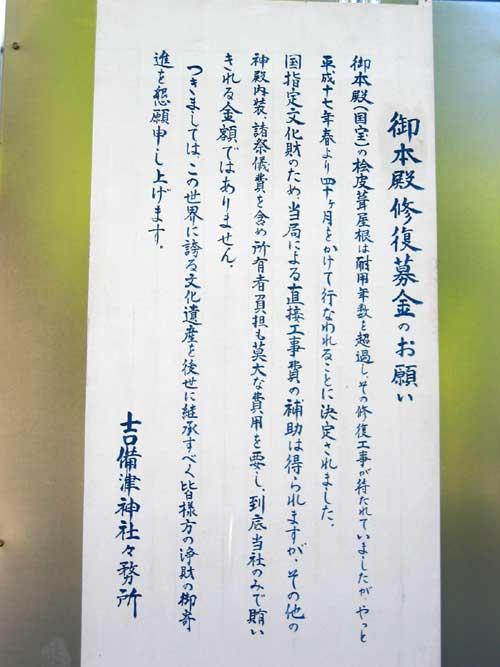 御本殿修復募金のお願い
御本殿(国宝)の桧皮葺屋根は耐用年数を超過し、その修復工事が待たれていましたが、やっと
平成十七年春より四十ヶ月をかけて行なわれることに決定されました。
国指定文化財のため、当局による直接工事費の補助は得られますが、その他の
神殿内装、諸祭儀費を含め所有者負担も莫大な費用を要し、到底当社のみで賄い
きれる金額ではありません。
つきましては、この世界に誇る文化遺産を後世に継承すべく皆様方の浄財の御寄
進を懇願申し上げます。
吉備津神社々務所